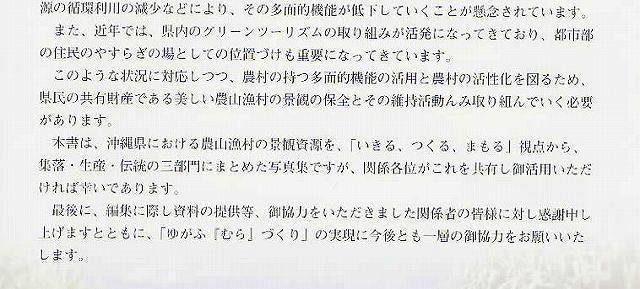 源の循環利用の減少などにより、その多面的機能が低下していくことが懸念されています。
また、近年では、県内のグリーンツーリズムの取り組みが活発になってきており、都市部
の住民のやすらぎの場としての位置づけも重要になってきています。
このような状況に対応しつつ、農村の持つ多面的機能の活用と農村の活性化を図るため、
県民の共有財産である美しい農山漁村の景観の保全とその維持活動んみ取り組んでいく必要
があります。
本書は、沖縄県における農山漁村の景観資源を、「いきる、つくる、まもる」視点から、
集落・生産・伝統の三部門にまとめた写真集ですが、関係各位がこれを共有し御活用いただ
ければ幸いであります。
最後に、編集に際し資料の提供等、御協力をいただきました関係者の皆様に対し感謝申し
上げますとともに、「ゆがふ『むら』づくり」の実現に今後とも一層の御協力をお願いいた
します。